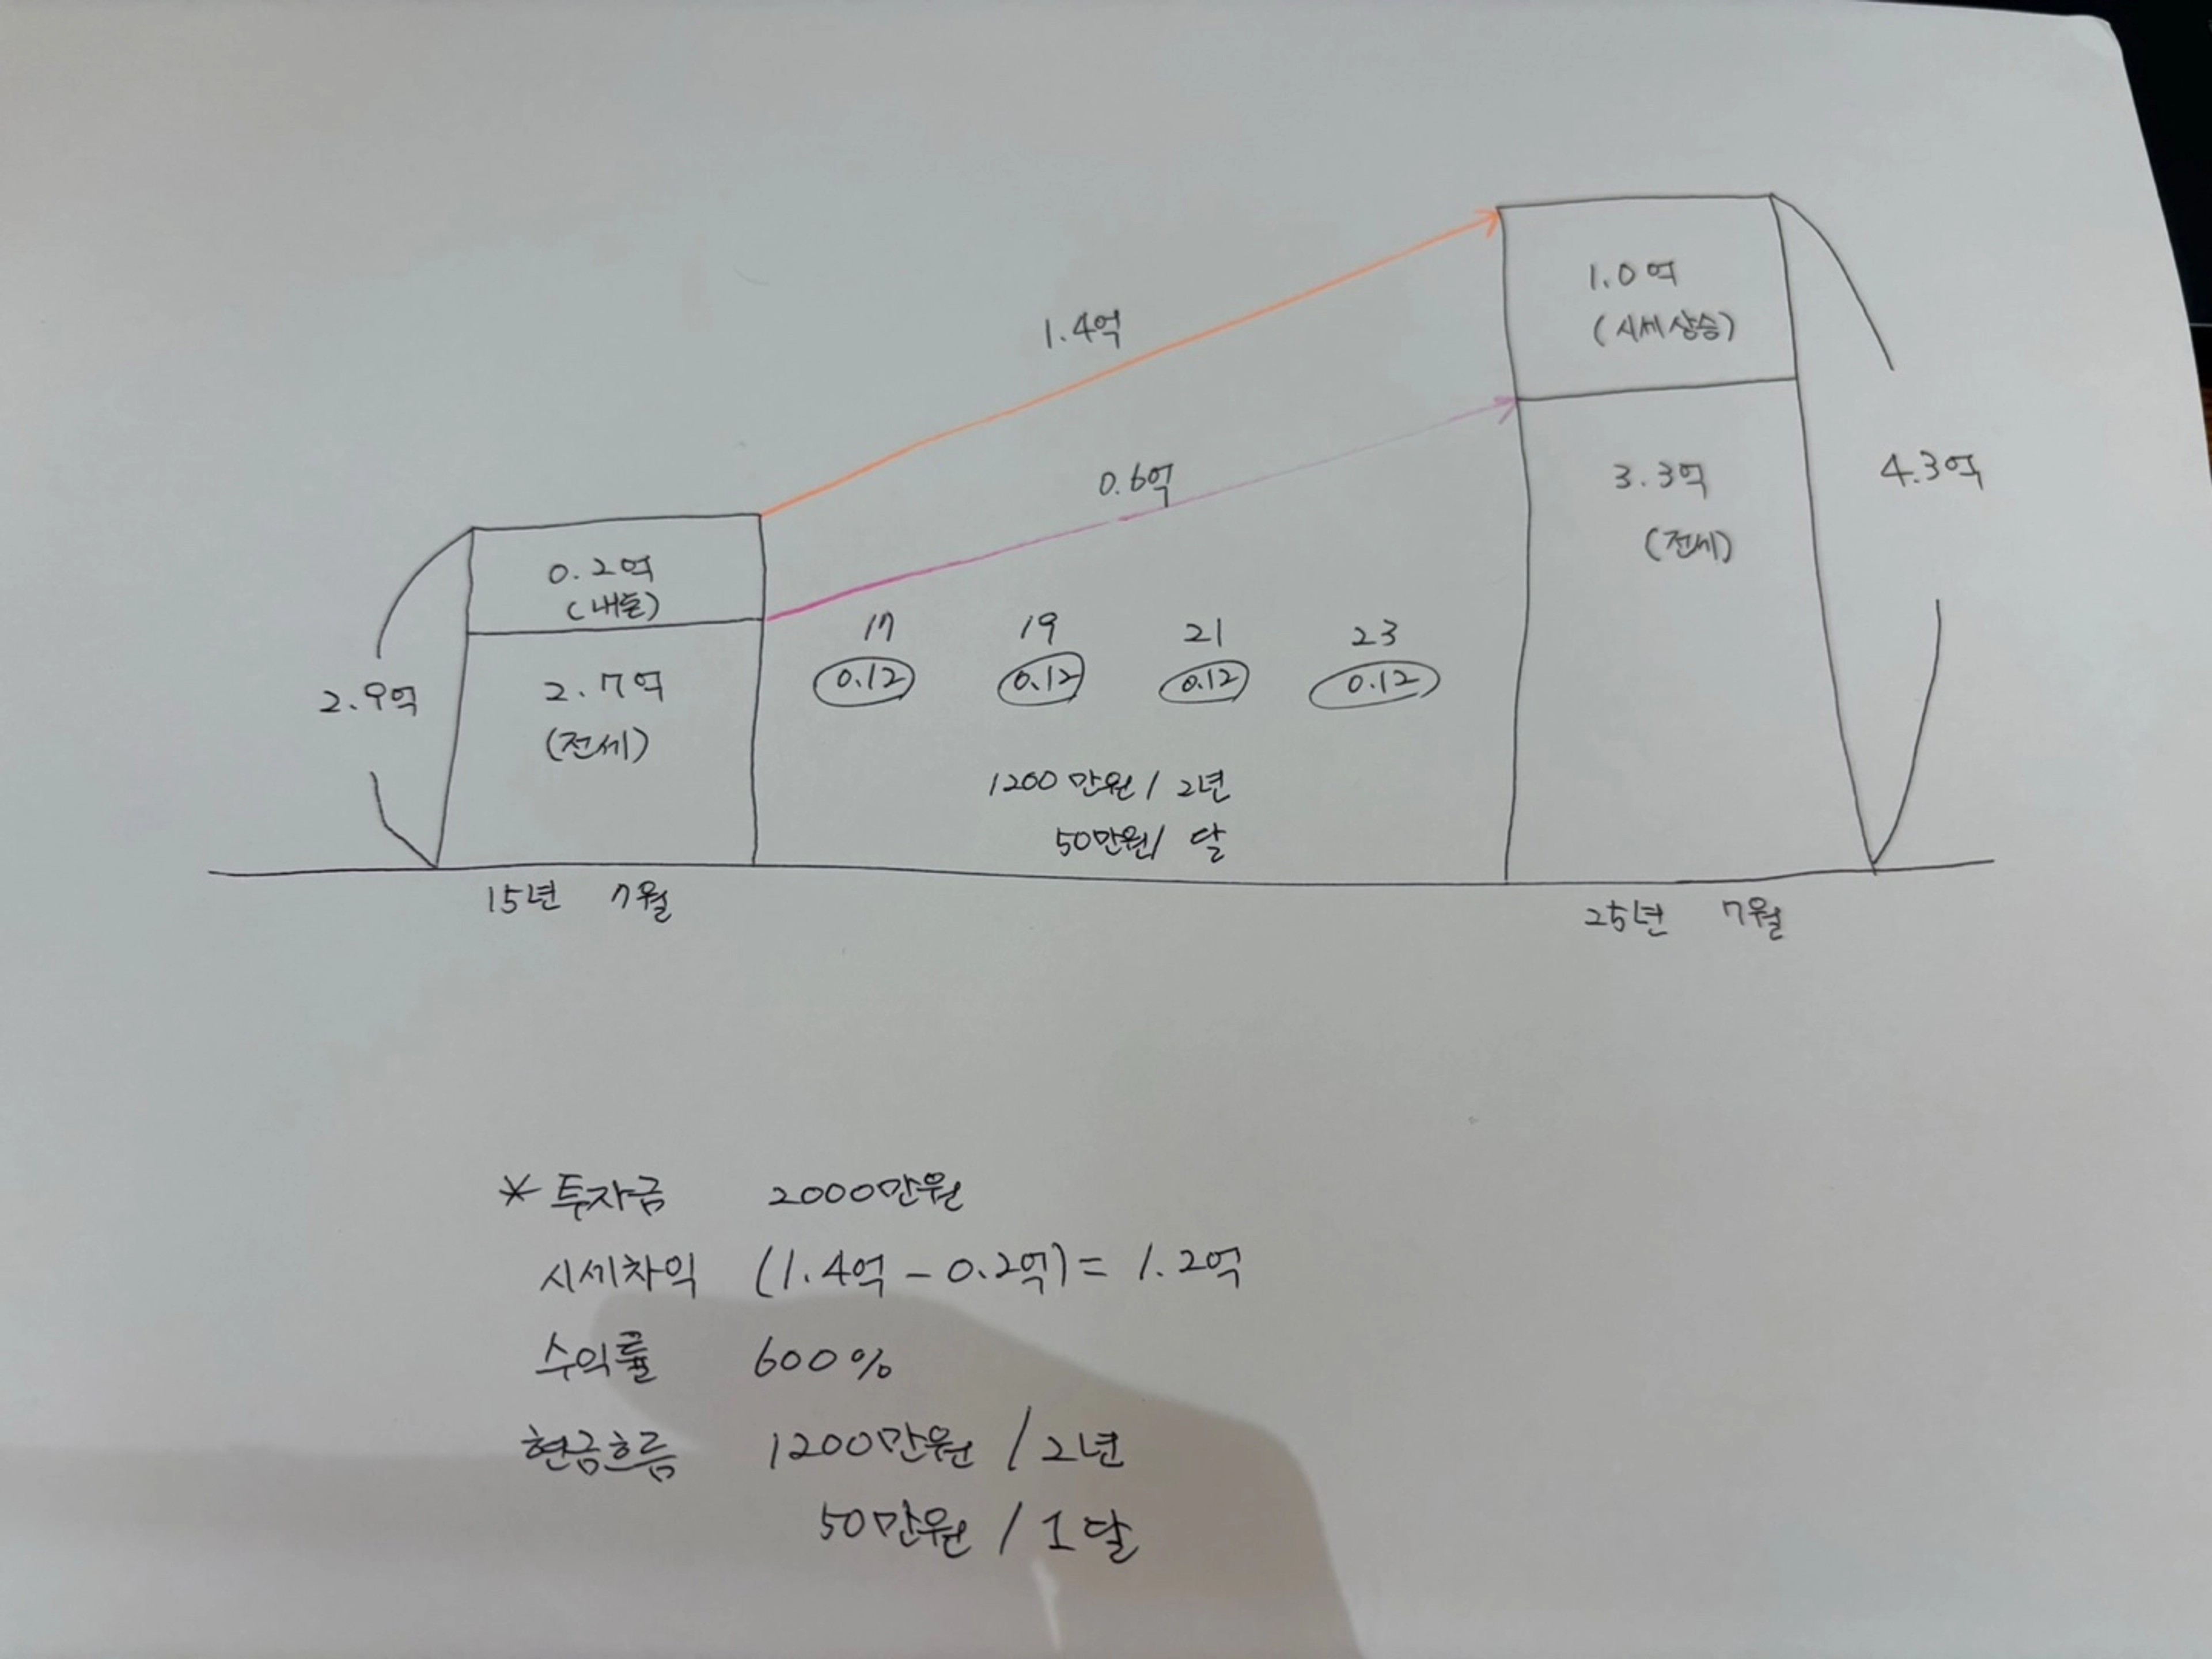 1.0억
(시세상승)
1.4억
0.6억
3.3억
(전세)
4.3억
0.2억
(내돈)
2.9억
2.7억
(전세)
17 19 21 23
0.12 0.12 0.12 0.12
1200만원 / 2년
50만원/ 달
15년 7월
25년 7월
* 투자금 2000만원
시세차익 (1.4억 - 0.2억) = 1.2억
수익률 600%
현금흐름 1200만원 / 2년
50만원 / 1달